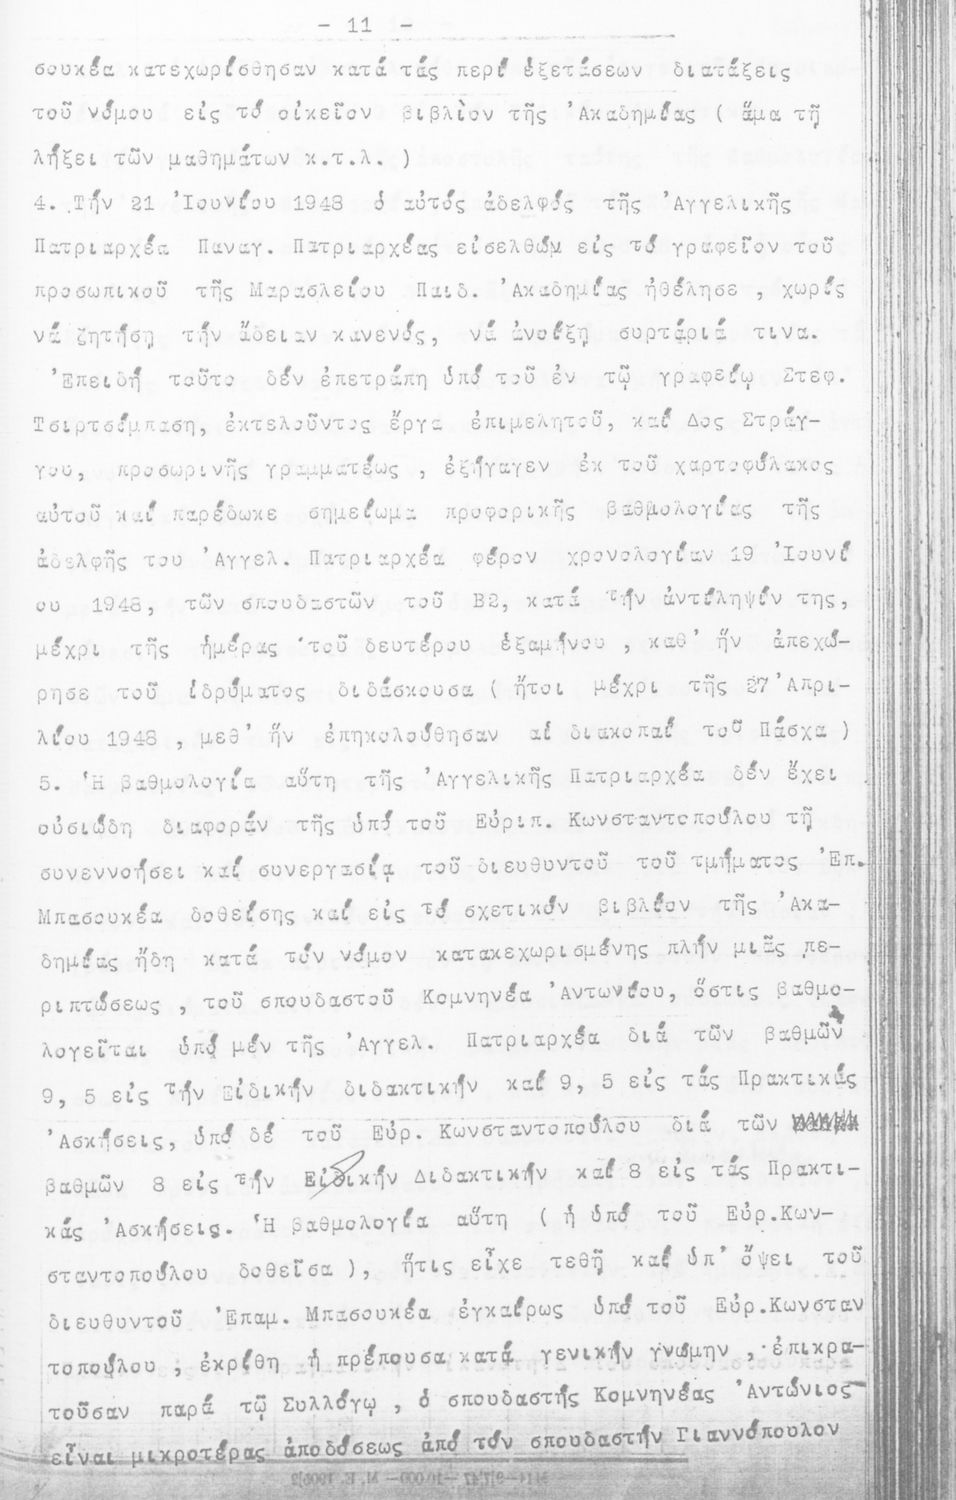 - 11 -
σουκέα κατεχωρίσθησαν κατά τάς περί ἐξετάσεων διατάξεις
τοῦ νόμου εἰς τό οἰκεῖον βιβλίον τῆς Ἀκαδημίας ( ἅμα τῇ
λήξει τῶν μαθημάτων κ.τ.λ. )
4. Τήν 21 Ἰουνίου 1948 ὁ αὐτός ἀδελφός τῆς Ἀγγελικῆς
Πατριαρχέα Παναγ. Πατριαρχέας εἰσελθών εἰς τό γραφεῖον τοῦ
προσωπικοῦ τῆς Μαρασλείου Παιδ. Ἀκαδημίας ἠθέλησε , χωρίς
νά ζητήσῃ τήν ἄδειαν κανενός, νά ἀνοίξῃ συρτάριά τινα.
Ἐπειδή τοῦτο δέν ἐπετράπη ὑπό τοῦ ἐν τῷ γραφείῳ Στεφ.
Τσιρτσίμπαση, ἐκτελοῦντος ἔργα ἐπιμελητοῦ, καί Δος Στράγ-
γου, προσωρινῆς γραμματέως , ἐξήγαγεν ἐκ τοῦ χαρτοφύλακος
αὐτοῦ καί παρέδωκε σημείωμα προφορικῆς βαθμολογίας τῆς
ἀδελφῆς του Ἀγγελ. Πατριαρχέα φέρον χρονολογίαν 19 Ἰουνί
ου 1948, τῶν σπουδαστῶν τοῦ Β2, κατά τήν ἀντίληψίν της,
μέχρι τῆς ἡμέρας τοῦ δευτέρου ἑξαμήνου , καθ' ἥν ἀπεχώ-
ρησε τοῦ ἱδρύματος διδάσκουσα ( ἤτοι μέχρι τῆς 27 Ἀπρι-
λίου 1948 , μεθ' ἥν ἐπηκολούθησαν αἱ διακοπαί τοῦ Πάσχα )
5. Ἡ βαθμολογία αὕτη τῆς Ἀγγελικῆς Πατριαρχέα δέν ἔχει
οὐσιώδη διαφοράν τῆς ὑπό τοῦ Εὐριπ. Κωνσταντοπούλου τῇ
συνεννοήσει καί συνεργασίᾳ τοῦ διευθυντοῦ τοῦ τμήματος Ἐπ.
Μπασουκέα δοθείσης καί εἰς τό σχετικόν βιβλίον τῆς Ἀκα-
δημίας ἤδη κατά τόν νόμον κατακεχωρισμένης πλήν μιᾶς πε-
ριπτώσεως , τοῦ σπουδαστοῦ Κομνηνέα Ἀντωνίου, ὅστις βαθμο-
λογεῖται ὑπό μέν τῆς Ἀγγελ. Πατριαρχέα διά τῶν βαθμῶν
9, 5 εἰς τήν Εἰδικήν διδακτικήν καί 9, 5 εἰς τάς Πρακτικάς
Ἀσκήσεις, ὑπό δέ τοῦ Εὐρ. Κωνσταντοπούλου διά τῶν
βαθμῶν 8 εἰς τήν Εἰδικήν Διδακτικήν καί 8 εἰς τάς Πρακτι-
κάς Ἀσκήσεις. Ἡ βαθμολογία αὕτη ( ἡ ὑπό τοῦ Εὐρ.Κων-
σταντοπούλου δοθεῖσα ), ἥτις εἶχε τεθῆ καί ὑπ' ὄψει τοῦ
διευθυντοῦ Ἐπαμ. Μπασουκέα ἐγκαίρως ὑπό τοῦ Εὐρ.Κωνσταν
τοπούλου , ἐκρίθη ἡ πρέπουσα κατά γενικήν γνώμην , ἐπικρα-
τοῦσαν παρά τῷ Συλλόγῳ , ὁ σπουδαστής Κομνηνέας Ἀντώνιος
εἶναι μικροτέρας ἀποδόσεως ἀπό τόν σπουδαστήν Γιαννόπουλον